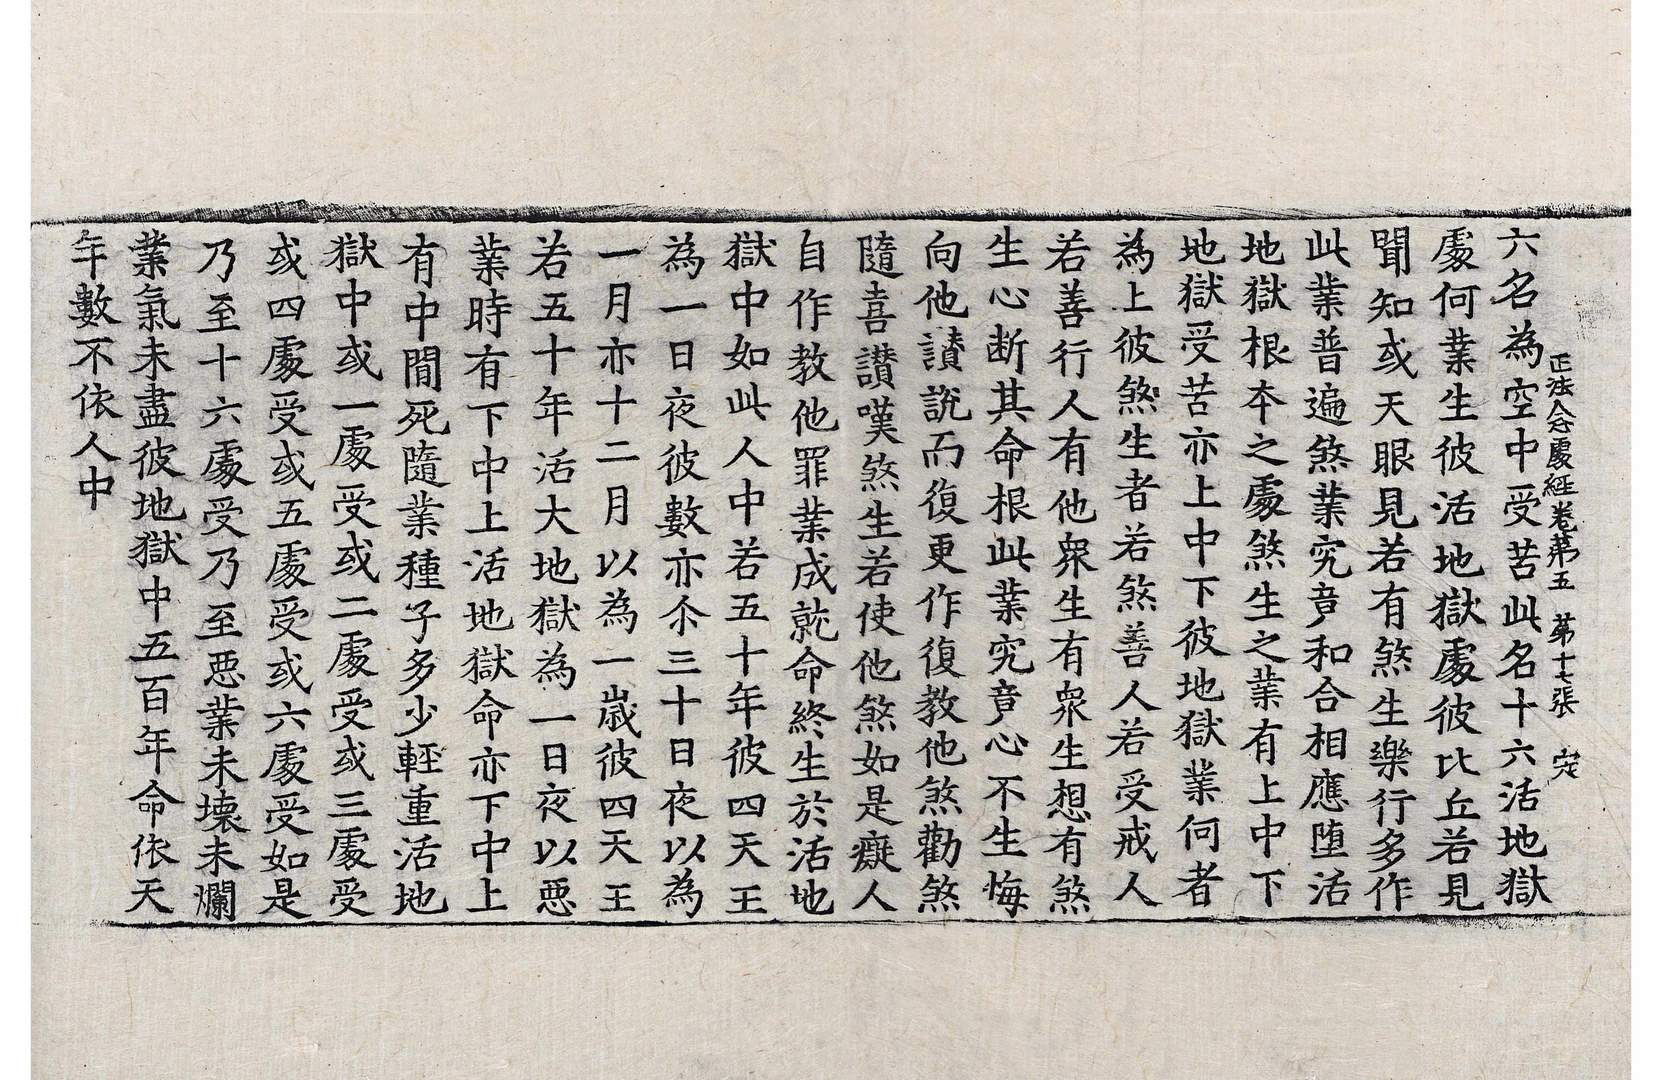 正法念處經卷第五　第十七張　定
六名為空中受苦此名十六活地獄
處何業生彼活地獄處彼比丘若見
聞知或天眼見若有煞生樂行多作
此業普遍煞業究竟和合相應堕活
地獄根本之處煞生之業有上中下
地獄受苦亦上中下彼地獄業何者
為上彼煞生者若煞善人若受戒人
若善行人有他衆生有衆生想有煞
生心断其命根此業究竟心不生悔
向他讃說而復更作復教他煞勸煞
隨喜讃嘆煞生若使他煞如是癡人
自作教他罪業成就命終生於活地
獄中如此人中若五十年彼四天王
為一日夜彼數亦尒三十日夜以為
一月亦十二月以為一歲彼四天王
若五十年活大地獄為一日夜以惡
業時有下中上活地獄命亦下中上
有中間死隨業種子多少輕重活地
獄中或一處受或二處受或三處受
或四處受或五處受或六處受如是
乃至十六處受乃至惡業未壊未爛
業氣未盡彼地獄中五百年命依天
年數不依人中